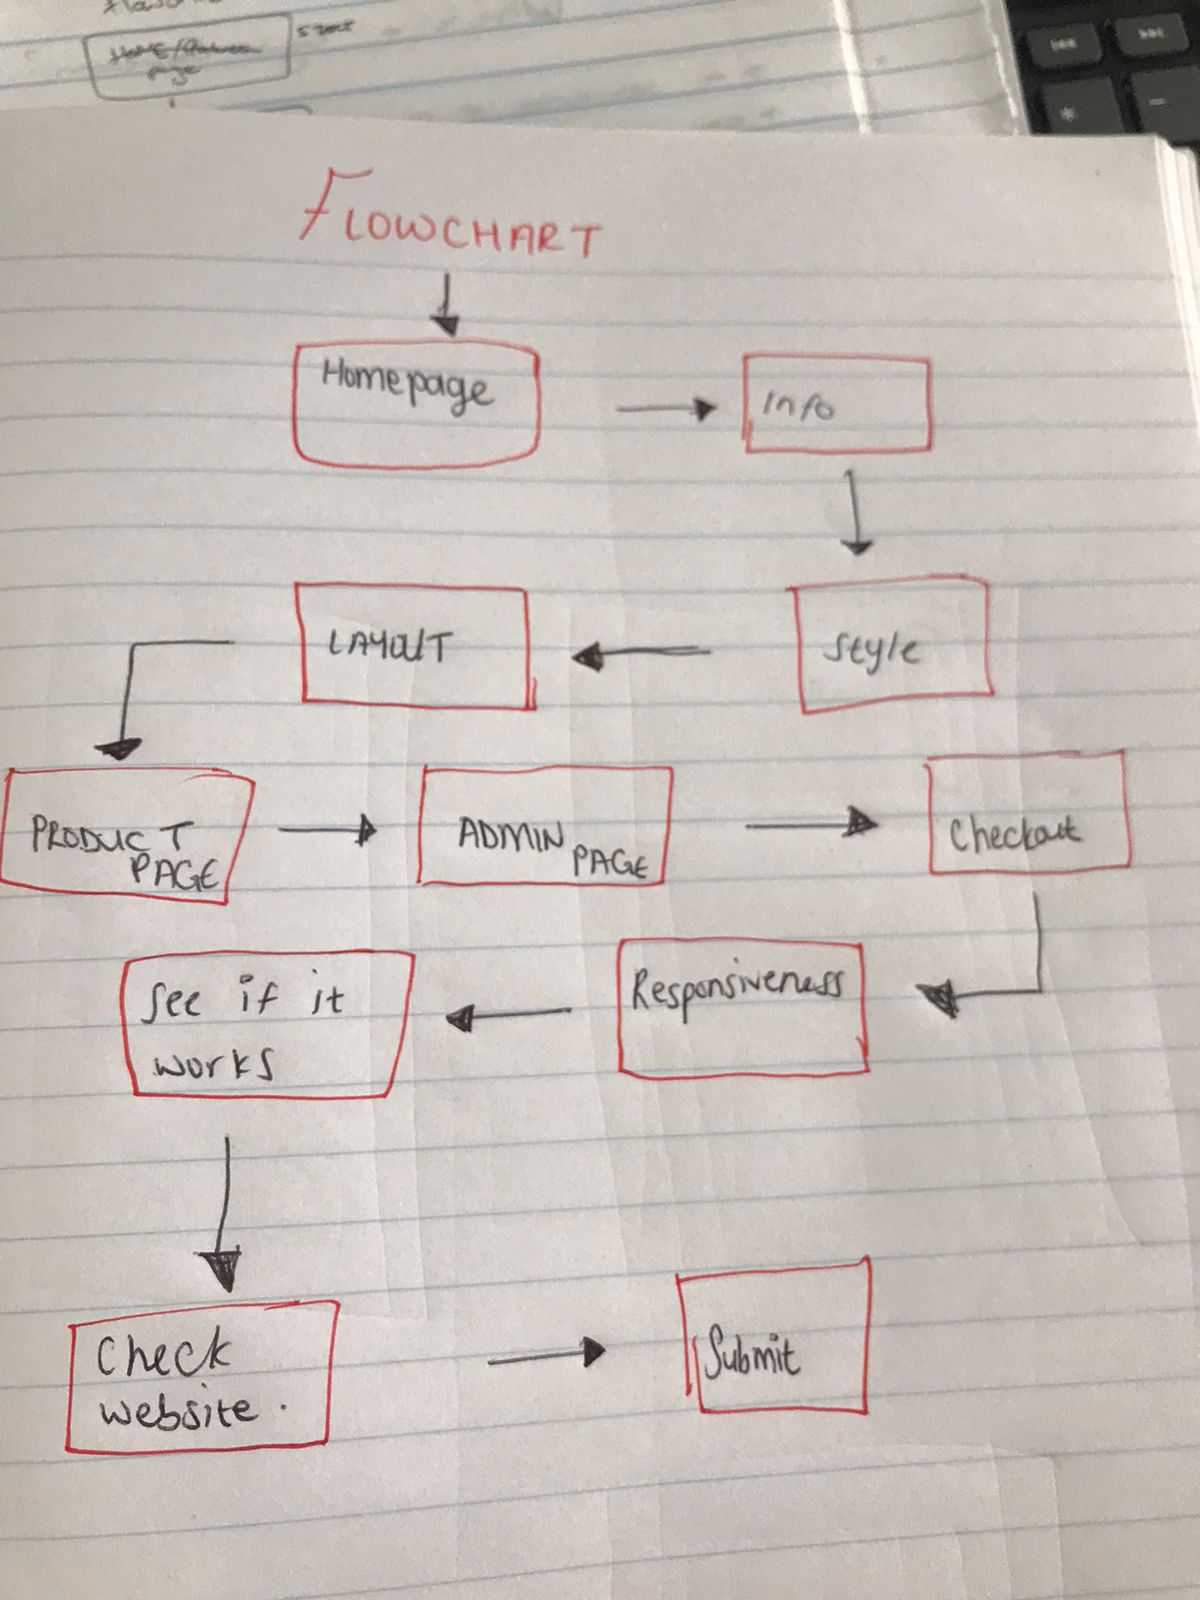 FLOWCHART
Homepage
Info
Style
LAYOUT
PRODUCT
PAGE
ADMIN
PAGE
Checkout
Responsiveness
See if it
works
Check
website.
Submit